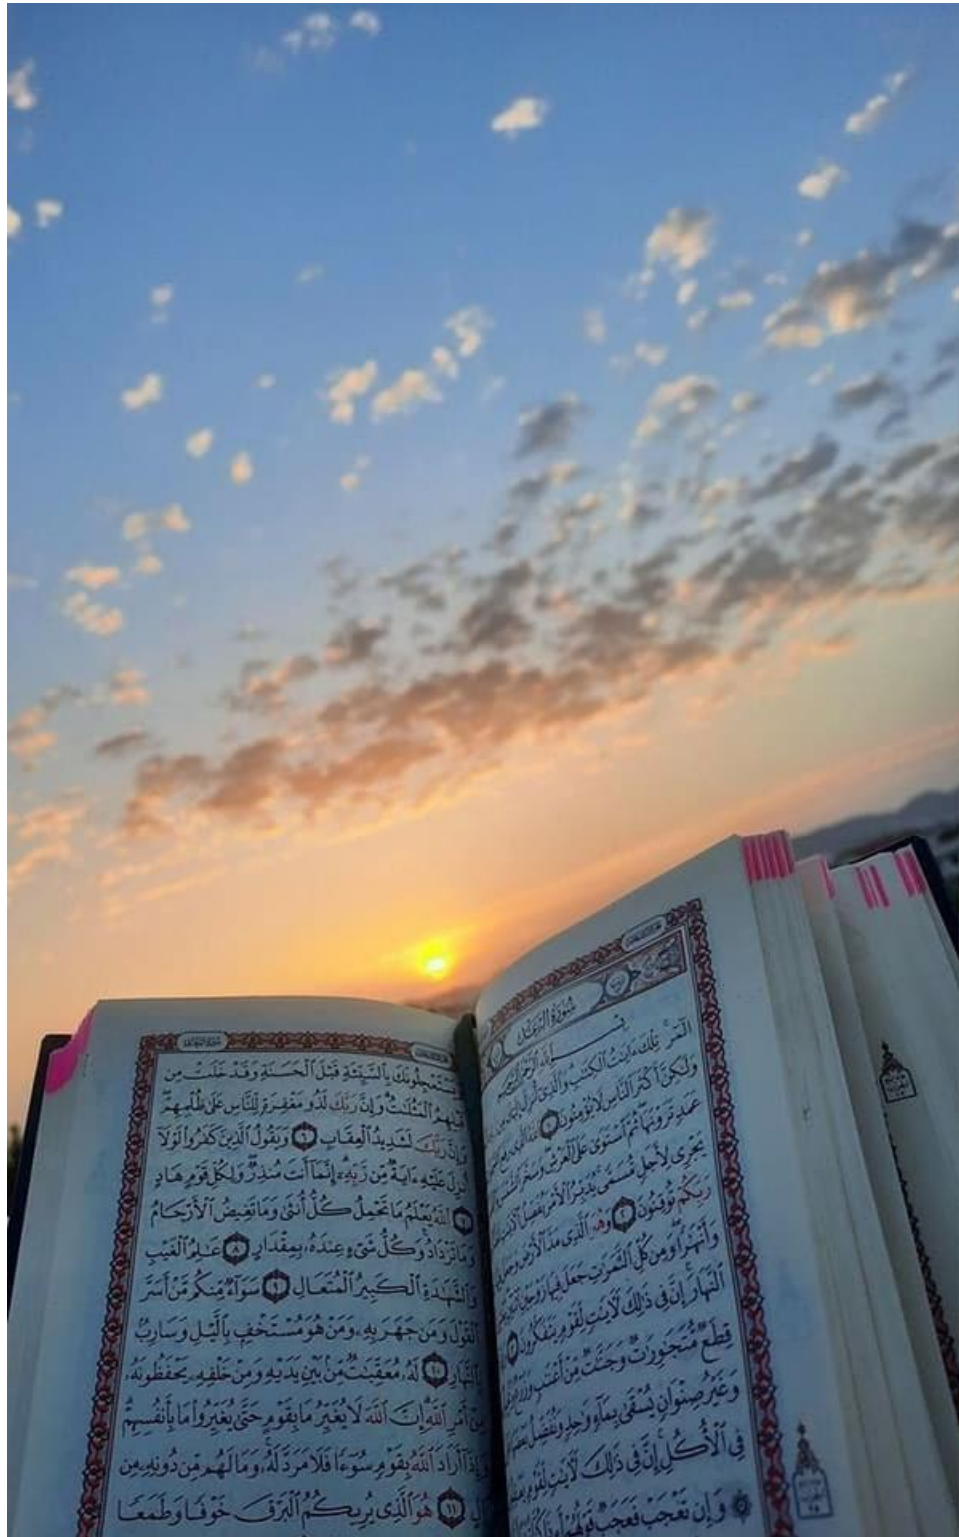 سُورَةُ الرَّعْدِ
بِسْمِ ٱللَّهِ ٱلرَّحْمَٰنِ ٱلرَّحِيمِ
الٓمٓر تِلْكَ ءَايَٰتُ ٱلْكِتَٰبِ وَٱلَّذِىٓ أُنزِلَ إِلَيْكَ مِن
وَلَٰكِنَّ أَكْثَرَ ٱلنَّاسِ لَا يُؤْمِنُونَ ١ ٱللَّهُ ٱلَّذِى رَفَعَ
عَمَدٍ تَرَوْنَهَا ثُمَّ ٱسْتَوَىٰ عَلَى ٱلْعَرْشِ وَسَخَّرَ ٱلشَّمْسَ
يَجْرِى لِأَجَلٍ مُّسَمًّى يُدَبِّرُ ٱلْأَمْرَ يُفَصِّلُ ٱلْءَايَٰتِ
رَبِّكُمْ تُوقِنُونَ ٢ وَهُوَ ٱلَّذِى مَدَّ ٱلْأَرْضَ وَجَعَلَ
وَأَنْهَٰرًا وَمِن كُلِّ ٱلثَّمَرَٰتِ جَعَلَ فِيهَا زَوْجَيْنِ
ٱلنَّهَارَ إِنَّ فِى ذَٰلِكَ لَءَايَٰتٍ لِّقَوْمٍ يَتَفَكَّرُونَ ٣
قِطَعٌ مُّتَجَٰوِرَٰتٌ وَجَنَّٰتٌ مِّنْ أَعْنَٰبٍ وَزَرْعٌ
وَغَيْرُ صِنْوَانٍ يُسْقَىٰ بِمَآءٍ وَٰحِدٍ وَنُفَضِّلُ بَعْضَهَا
فِى ٱلْأُكُلِ إِنَّ فِى ذَٰلِكَ لَءَايَٰتٍ لِّقَوْمٍ
۞ وَإِن تَعْجَبْ فَعَجَبٌ قَوْلُهُمْ أَءِذَا كُنَّا
وَيَسْتَعْجِلُونَكَ بِٱلسَّيِّئَةِ قَبْلَ ٱلْحَسَنَةِ وَقَدْ خَلَتْ مِن
قَبْلِهِمُ ٱلْمَثُلَٰتُ وَإِنَّ رَبَّكَ لَذُو مَغْفِرَةٍ لِّلنَّاسِ عَلَىٰ ظُلْمِهِمْ
وَإِنَّ رَبَّكَ لَشَدِيدُ ٱلْعِقَابِ ٦ وَيَقُولُ ٱلَّذِينَ كَفَرُوا۟ لَوْلَآ
أُنزِلَ عَلَيْهِ ءَايَةٌ مِّن رَّبِّهِۦٓ إِنَّمَآ أَنتَ مُنذِرٌ وَلِكُلِّ قَوْمٍ هَادٍ
٧ ٱللَّهُ يَعْلَمُ مَا تَحْمِلُ كُلُّ أُنثَىٰ وَمَا تَغِيضُ ٱلْأَرْحَامُ
وَمَا تَزْدَادُ وَكُلُّ شَىْءٍ عِندَهُۥ بِمِقْدَارٍ ٨ عَٰلِمُ ٱلْغَيْبِ
وَٱلشَّهَٰدَةِ ٱلْكَبِيرُ ٱلْمُتَعَالِ ٩ سَوَآءٌ مِّنكُم مَّنْ أَسَرَّ
ٱلْقَوْلَ وَمَن جَهَرَ بِهِۦ وَمَنْ هُوَ مُسْتَخْفٍۭ بِٱلَّيْلِ وَسَارِبٌۢ
بِٱلنَّهَارِ ١٠ لَهُۥ مُعَقِّبَٰتٌ مِّنۢ بَيْنِ يَدَيْهِ وَمِنْ خَلْفِهِۦ يَحْفَظُونَهُۥ
مِنْ أَمْرِ ٱللَّهِ إِنَّ ٱللَّهَ لَا يُغَيِّرُ مَا بِقَوْمٍ حَتَّىٰ يُغَيِّرُوا۟ مَا بِأَنفُسِهِمْ
وَإِذَآ أَرَادَ ٱللَّهُ بِقَوْمٍ سُوٓءًا فَلَا مَرَدَّ لَهُۥ وَمَا لَهُم مِّن دُونِهِۦ مِن
وَالٍ ١١ هُوَ ٱلَّذِى يُرِيكُمُ ٱلْبَرْقَ خَوْفًا وَطَمَعًا